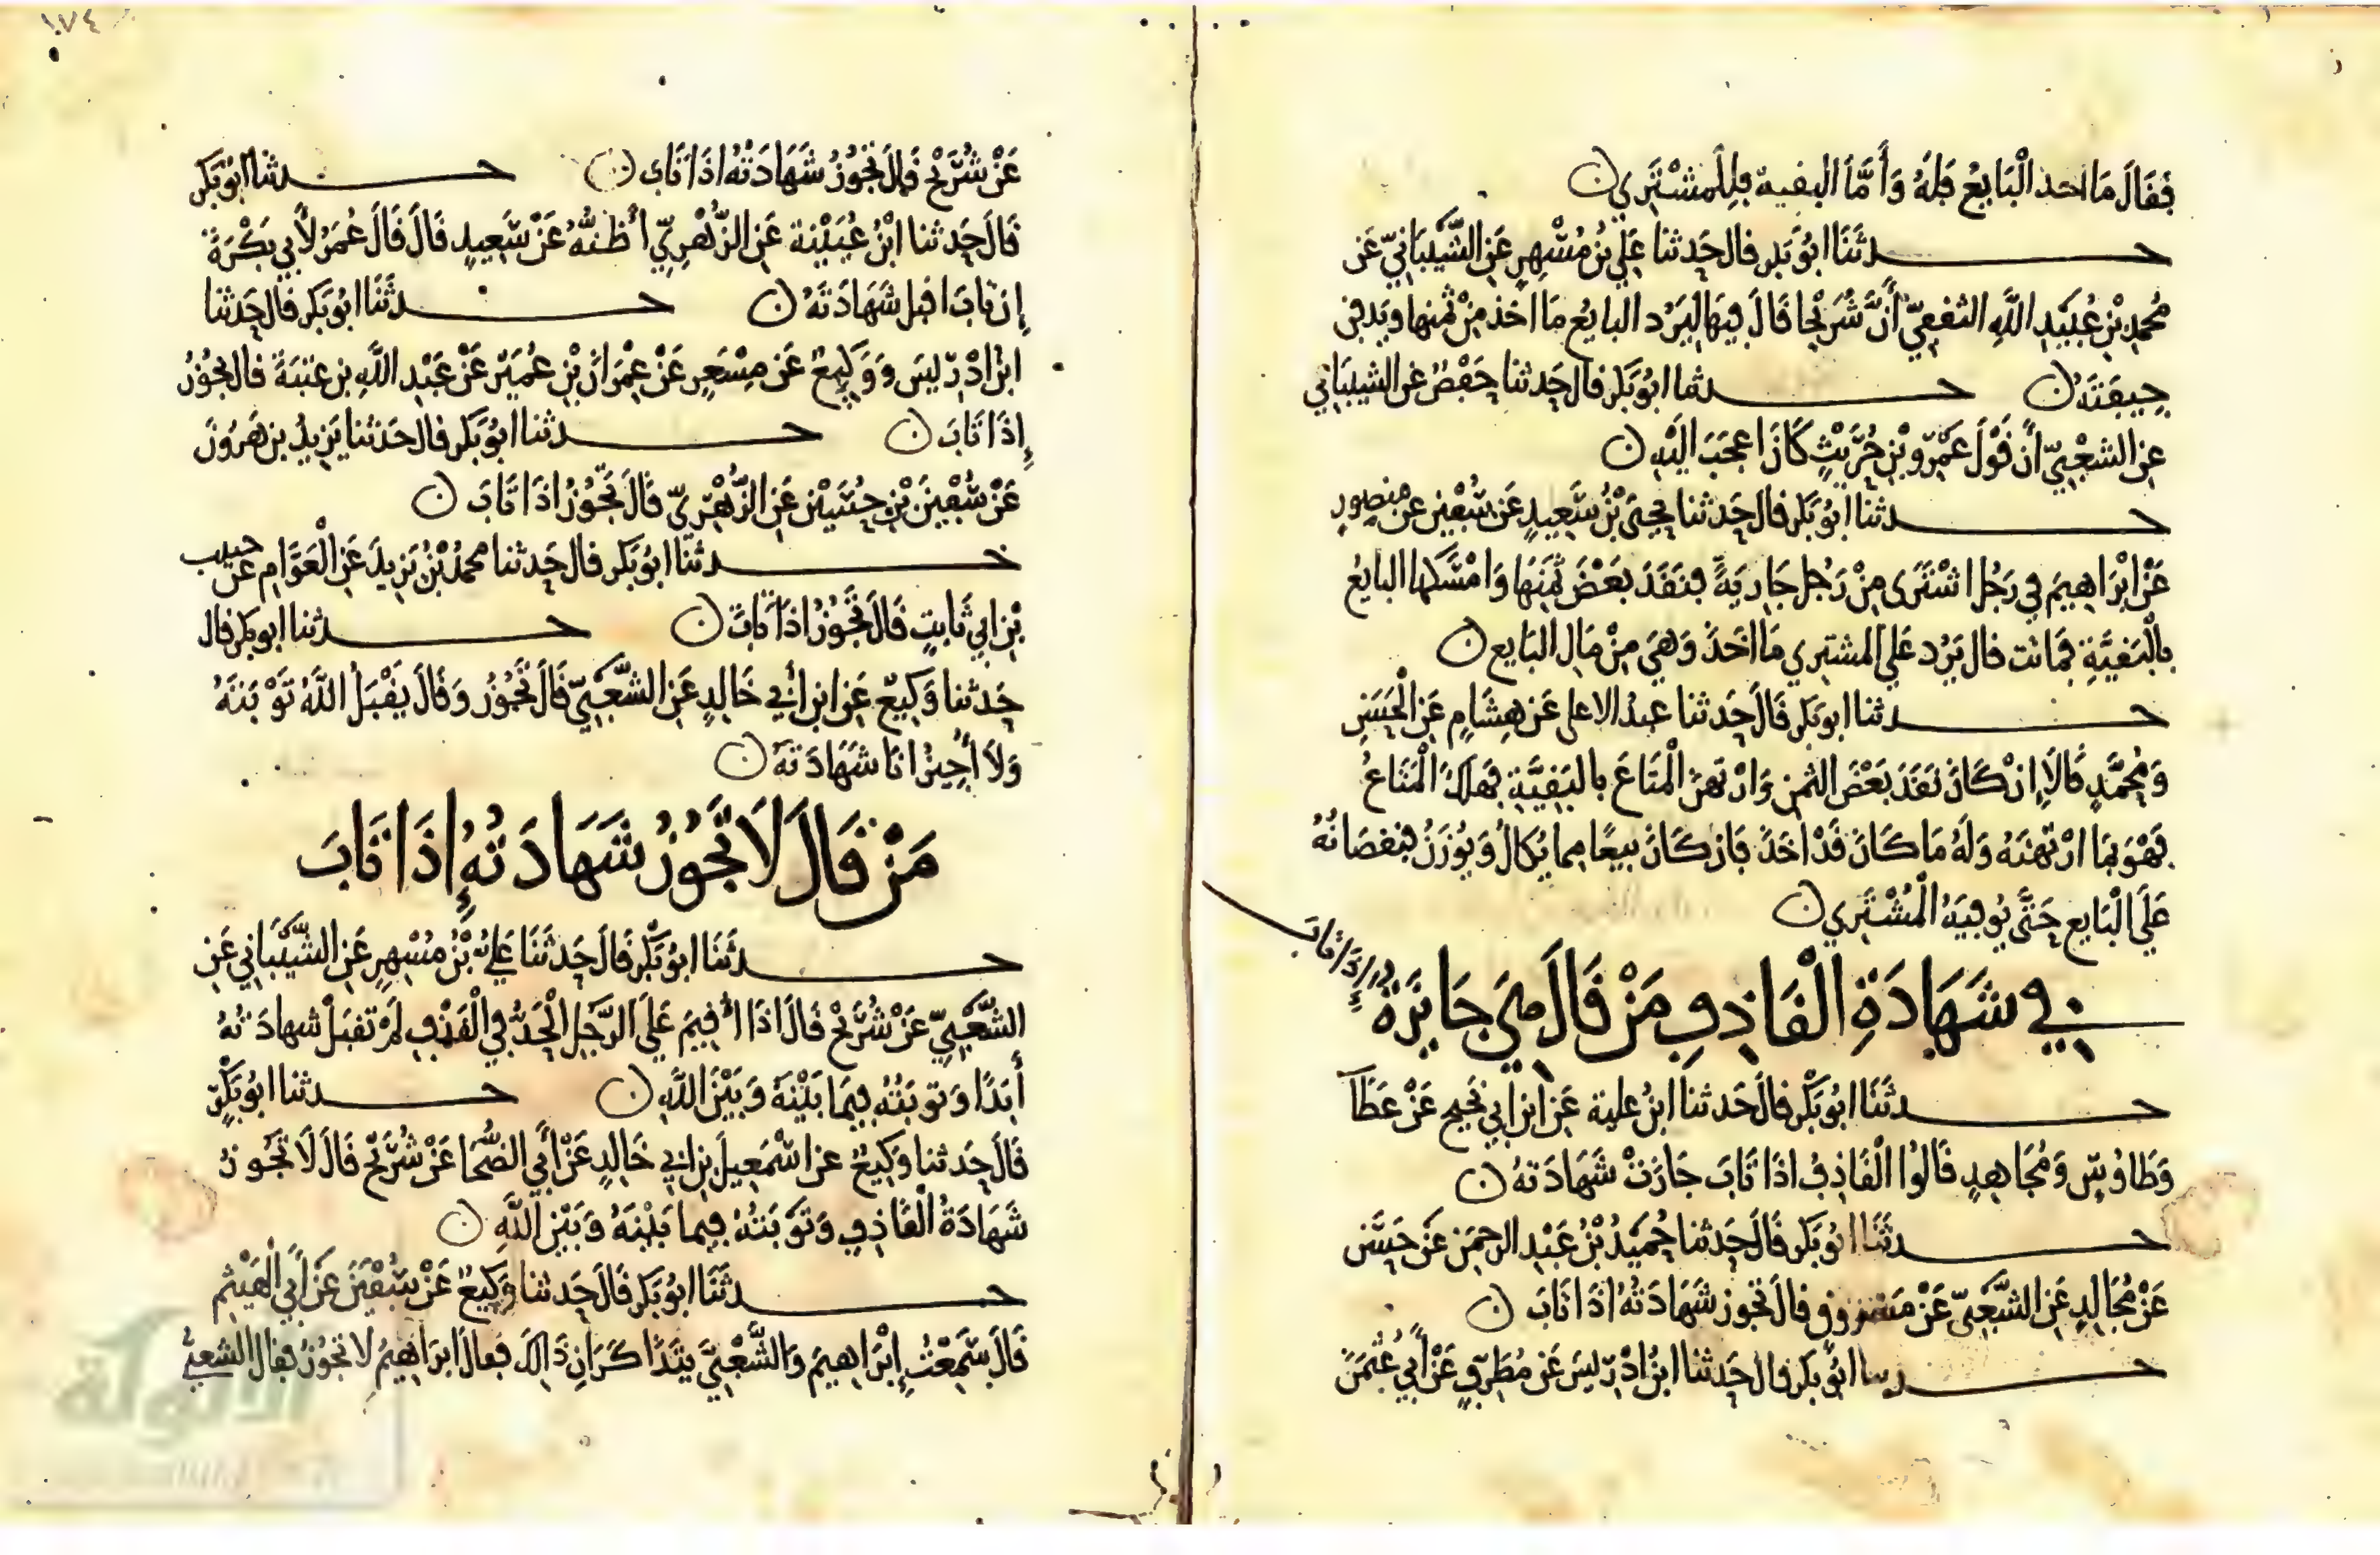 فقال ما اخذ البايع فله وأما البقية فللمشتري
حدثنا ابو بكر قال حدثنا علي بن مسهر عن الشيباني عن
محمد بن عبيد الله الثقفي أن شريحا قال فيها ليرد البايع ما اخذ من ثمنها ويدفن
جيفته حدثنا ابو بكر قال حدثنا حفص عن الشيباني
عن الشعبي ان قول عمرو بن حريث كان اعجب اليه
حدثنا ابو بكر قال حدثنا يحيى بن سعيد عن سفين عن منصور
عن ابراهيم في رجل اشترى من رجل جارية فنقد بعض ثمنها وامسكها البايع
بالبقية فماتت قال يرد على المشتري ما اخذ وهي من مال البايع
حدثنا ابو بكر قال حدثنا عبد الاعلى عن هشام عن الحسن
ومحمد قالا إن كان نقد بعض الثمن وارتهن المتاع بالبقية فهلك المتاع
فهو بما ارتهنه وله ما كان قد اخذ فان كان بيعا مما يكال ويوزن فنقصانه
على البايع حتى يوفيه المشتري
في شهادة القاذف من قال هي جايزة إذا تاب
حدثنا ابو بكر قال حدثنا ابن علية عن ابن ابي نجيح عن عطا
وطاوس ومجاهد قالوا القاذف اذا تاب جازت شهادته
حدثنا ابو بكر قال حدثنا حميد بن عبد الرحمن عن حسن
عن مجالد عن الشعبي عن مسروق قال تجوز شهادته اذا تاب
حدثنا ابو بكر قال حدثنا ابن ادريس عن مطرف عن أبي عثمن
١٧٤
عن شريح قال تجوز شهادته اذا تاب حدثنا ابو بكر
قال حدثنا ابن عيينة عن الزهري أظنه عن سعيد قال قال عمر لأبي بكرة
إن تاب اقبل شهادته حدثنا ابو بكر قال حدثنا
ابن ادريس ووكيع عن مسعر عن عمران بن عمير عن عبد الله بن عتبة قال تجوز
إذا تاب حدثنا ابو بكر قال حدثنا يزيد بن هرون
عن سفين بن حسين عن الزهري قال تجوز اذا تاب
حدثنا ابو بكر قال حدثنا محمد بن يزيد عن العوام عن حبيب
بن ابي ثابت قال تجوز اذا تاب حدثنا ابو بكر قال
حدثنا وكيع عن ابن أبي خالد عن الشعبي قال تجوز وقال يقبل الله توبته
ولا أجيز انا شهادته
من قال لا تجوز شهادته إذا تاب
حدثنا ابو بكر قال حدثنا علي بن مسهر عن الشيباني عن
الشعبي عن شريح قال اذا أقيم على الرجل الحد في القذف لم تقبل شهادته
أبدا وتوبته فيما بينه وبين الله حدثنا ابو بكر
قال حدثنا وكيع عن اسمعيل بن ابي خالد عن أبي الضحا عن شريح قال لا تجوز
شهادة القاذف وتوبته فيما بينه وبين الله
حدثنا ابو بكر قال حدثنا وكيع عن سفين عن أبي الهيثم
قال سمعت إبراهيم والشعبي يتذاكران ذلك فقال ابراهيم لا تجوز فقال الشعبي
الألوكة